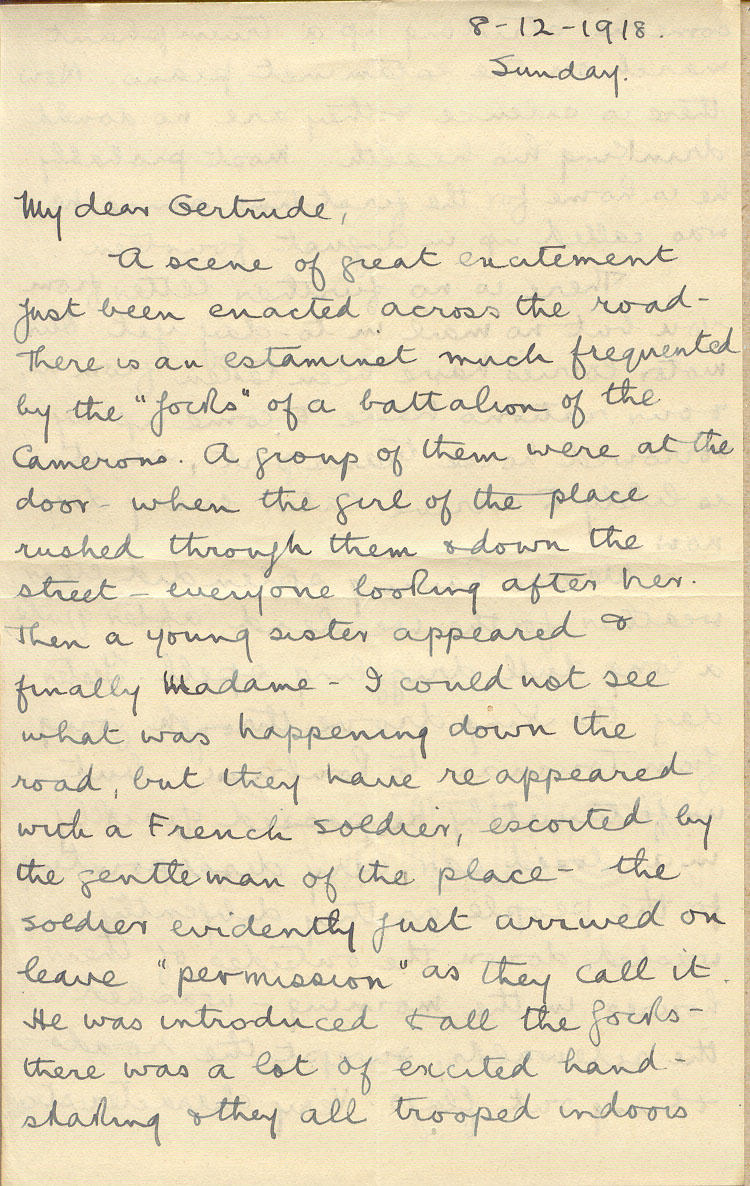 8-12-1918.
Sunday.
My dear Gertrude,
A scene of great excitement
just been enacted across the road-
There is an estaminet much frequented
by the "Jocks" of a battalion of the
Camerons. A group of them were at the
door - when the girl of the place
rushed through them & down the
street - everyone looking after her.
Then a young sister appeared &
finally Madame - I could not see
what was happening down the
road, but they have reappeared
with a French soldier, escorted by
the gentleman of the place - the
soldier evidently just arrived on
leave "permission" as they call it.
He was introduced to all the Jocks -
there was a lot of excited hand-
shaking & they all trooped indoors